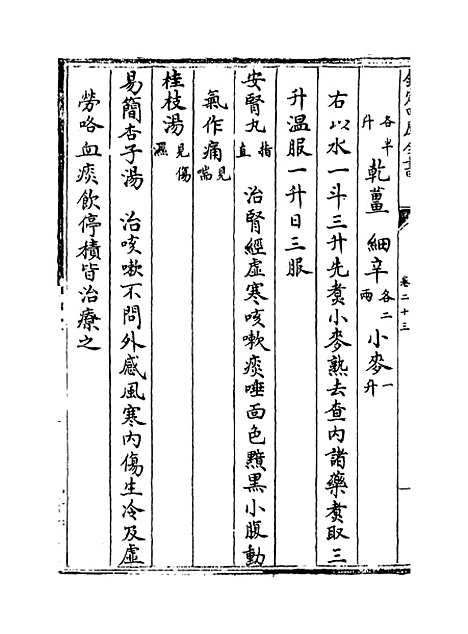 各半升乾薑 細辛各二兩小麥一升
右以水一斗三升先煑小麥熟去查内諸藥煑取三
升温服一升日三服
安腎丸直指 治腎經虚寒咳嗽痰唾面色黧黑小腹動
氣作痛見喘
桂枝湯見傷濕
易簡杏子湯 治咳嗽不問外感風寒内傷生冷及虚
勞咯血痰飲停積皆治療之
卷二十三